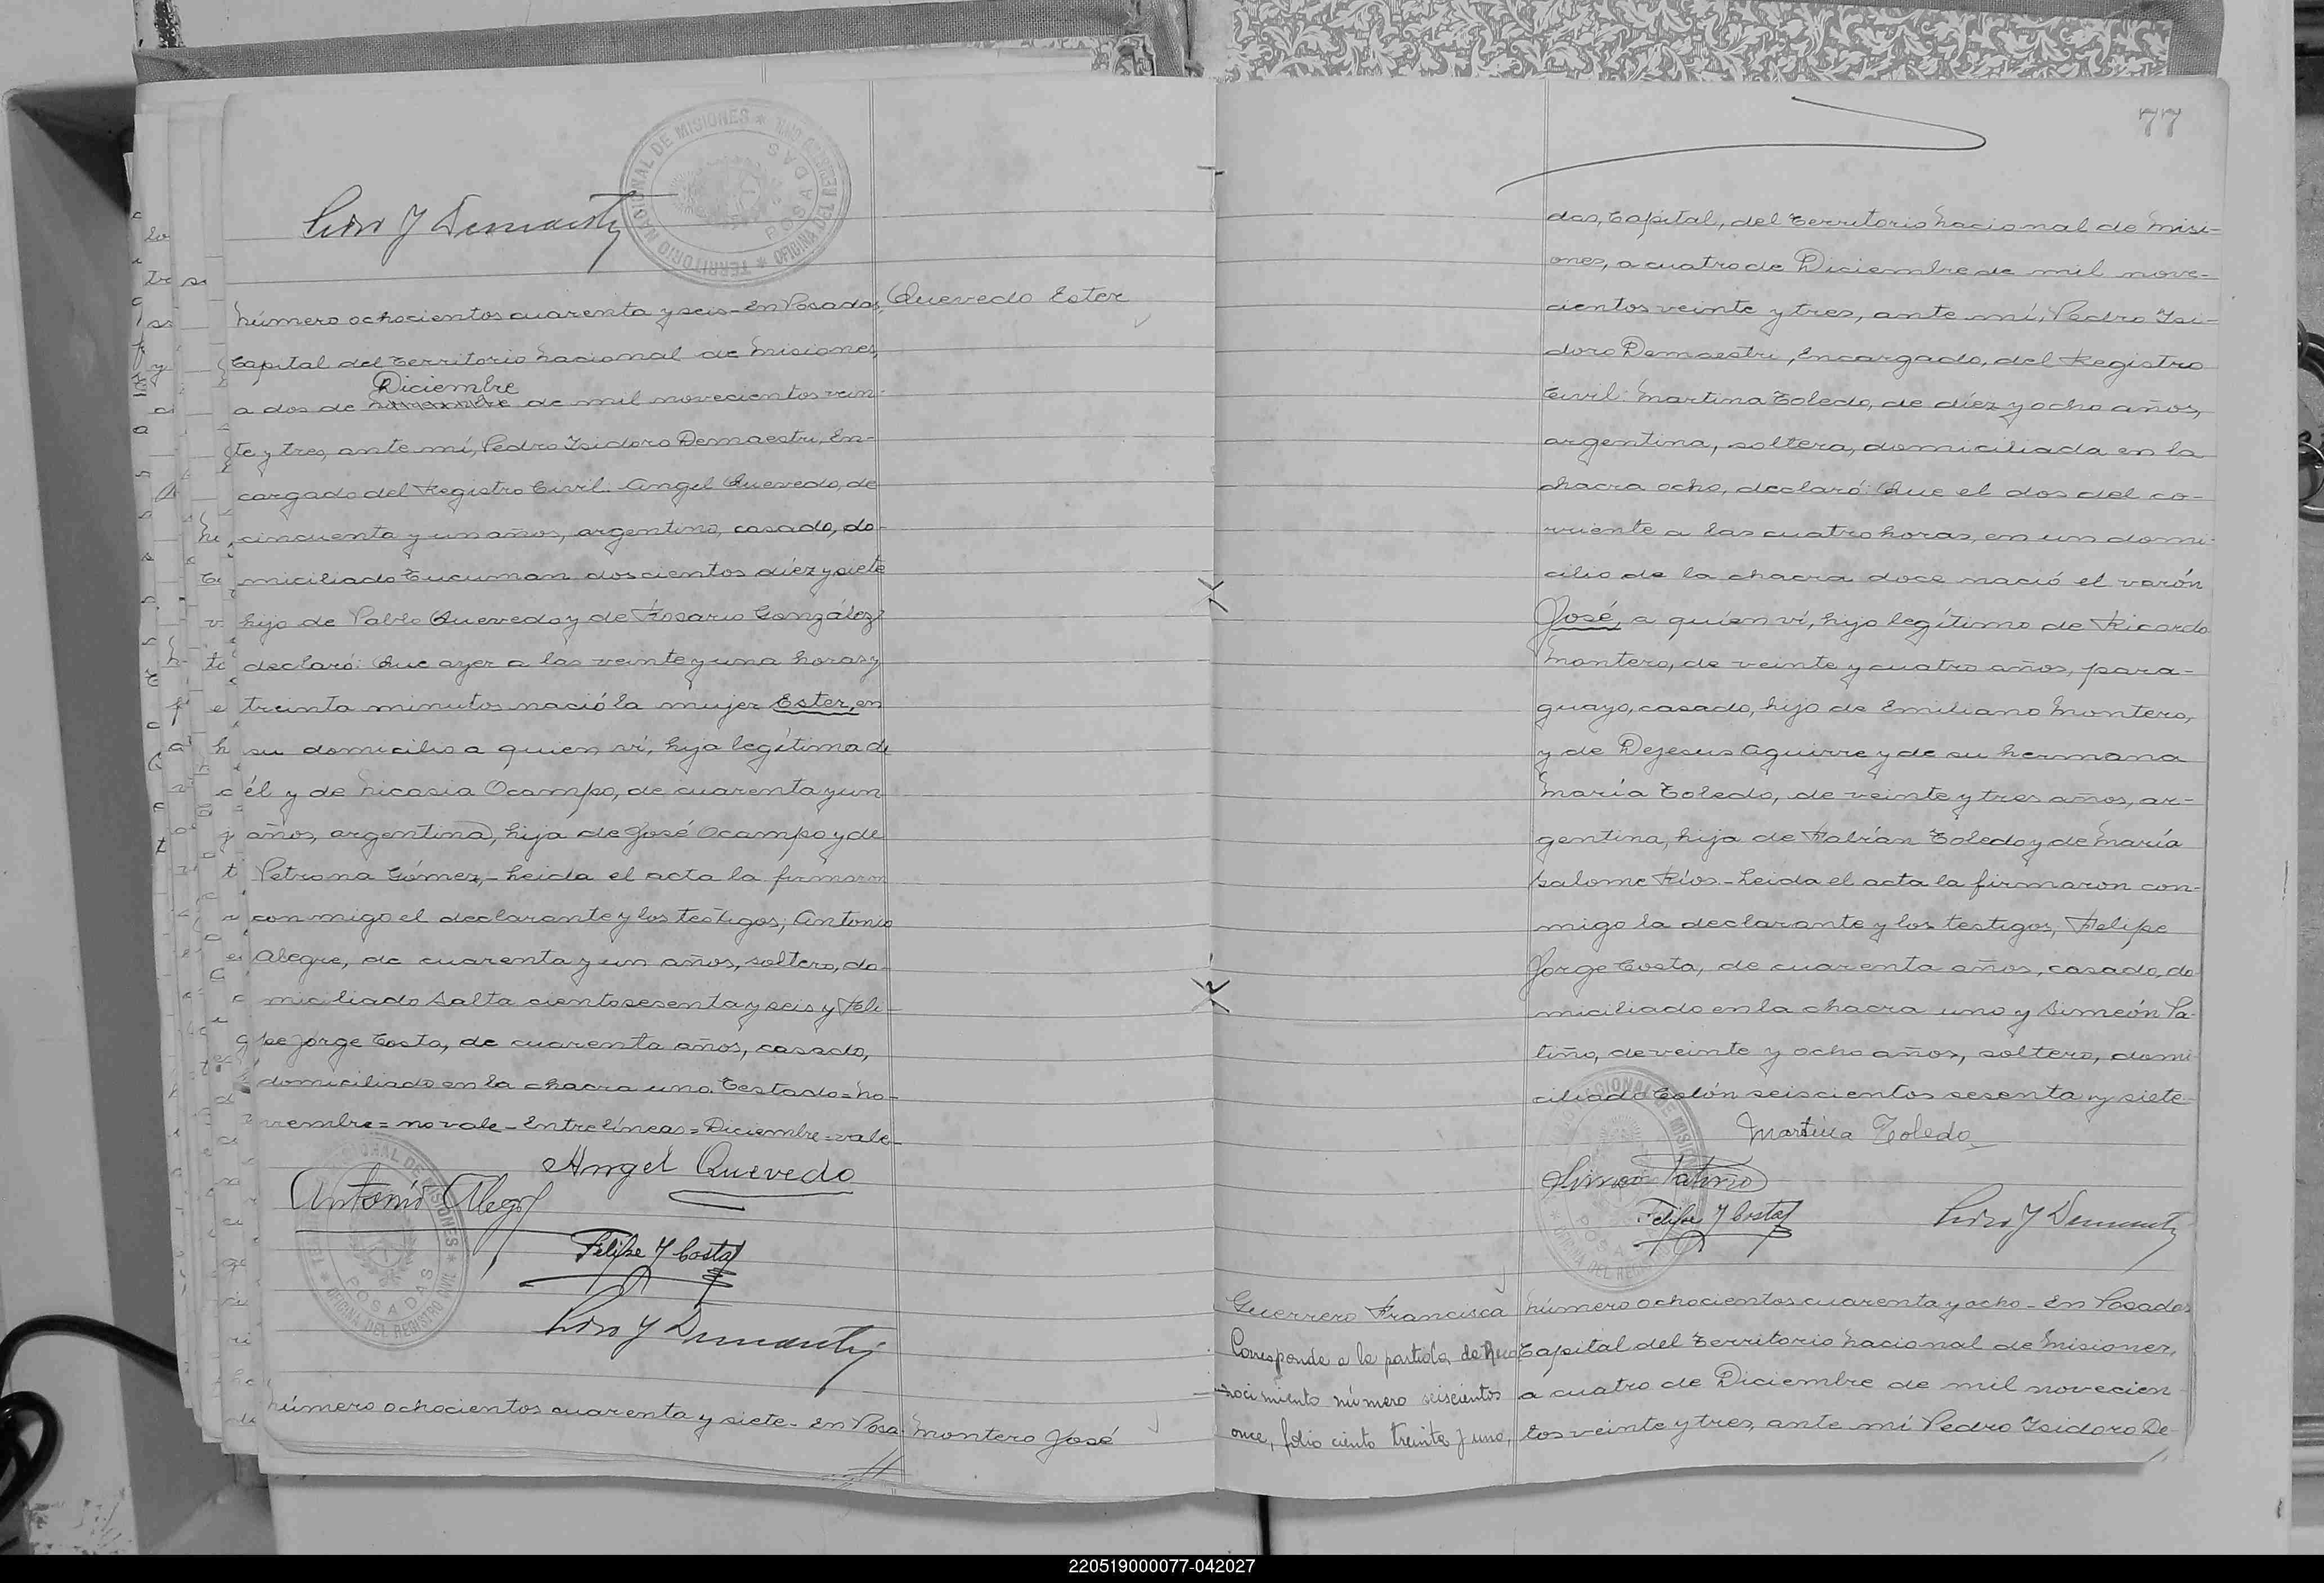 Pedro Y Demaestri
TERRITORIO NACIONAL DE MISIONES * OFICINA DEL REGISTRO CIVIL *
POSADAS
Quevedo Ester
Número ochocientos cuarenta y seis - En Posadas,
Capital del Territorio Nacional de Misiones,
Diciembre
a dos de Noviembre de mil novecientos vein-
te y tres, ante mí, Pedro Isidoro Demaestri, En-
cargado del Registro Civil. Angel Quevedo, de
cincuenta y un años, argentino, casado, do-
miciliado Tucuman doscientos diéz y siete
hijo de Pablo Quevedo y de Rosario González
declaró: Que ayer a las veinte y una horas y
treinta minutos nació la mujer Ester, en
su domicilio a quien ví, hija legítima de
él y de Nicasia Ocampo, de cuarenta y un
años, argentina, hija de José Ocampo y de
Petrona Gómez, - Leida el acta la firmaron
conmigo el declarante y los testigos; Antonio
Alegre, de cuarenta y un años, soltero, do-
miciliado Salta ciento sesenta y seis y Feli-
pe Jorge Costa, de cuarenta años, casado,
domiciliado en la chacra uno. Testado = No-
viembre = no vale - Entre líneas = Diciembre = vale -
Angel Quevedo
Antonio Alegre
Felipe J Costa
Pedro Y Demaestri
TERRITORIO NACIONAL DE MISIONES * OFICINA DEL REGISTRO CIVIL *
POSADAS
Número ochocientos cuarenta y siete - En Posa-
Montero José
77
das, Capital, del Territorio Nacional de Misi-
ones, a cuatro de Diciembre de mil nove-
cientos veinte y tres, ante mí, Pedro Isi-
doro Demaestri, Encargado, del Registro
Civil: Martina Toledo, de diéz y ocho años,
argentina, soltera, domiciliada en la
chacra ocho, declaró: Que el dos del co-
rriente a las cuatro horas, en un domi-
cilio de la chacra doce nació el varón
José, a quién ví, hijo legítimo de Ricardo
Montero, de veinte y cuatro años, para-
guayo, casado, hijo de Emiliano Montero,
y de Dejesus Aguirre y de su hermana
María Toledo, de veinte y tres años, ar-
gentina, hija de Fabían Toledo y de María
Salome Ríos - Leida el acta la firmaron con-
migo la declarante y los testigos, Felipe
Jorge Costa, de cuarenta años, casado, do
miciliado en la chacra uno y Simeón Pa-
tiño, de veinte y ocho años, soltero, domi-
ciliado Colón seiscientos sesenta y siete -
Martina Toledo
Simeon Patiño
Felipe J Costa
Pedro Y Demaestri
TERRITORIO NACIONAL DE MISIONES * OFICINA DEL REGISTRO CIVIL *
POSADAS
Guerrero Francisca
Corresponde a la partida de Reco-
nocimiento número seiscientos
once, folio ciento treinta y uno,
Número ochocientos cuarenta y ocho - En Posadas
Capital del Territorio Nacional de Misiones,
a cuatro de Diciembre de mil novecien-
tos veinte y tres, ante mí Pedro Isidoro De-
220519000077-042027